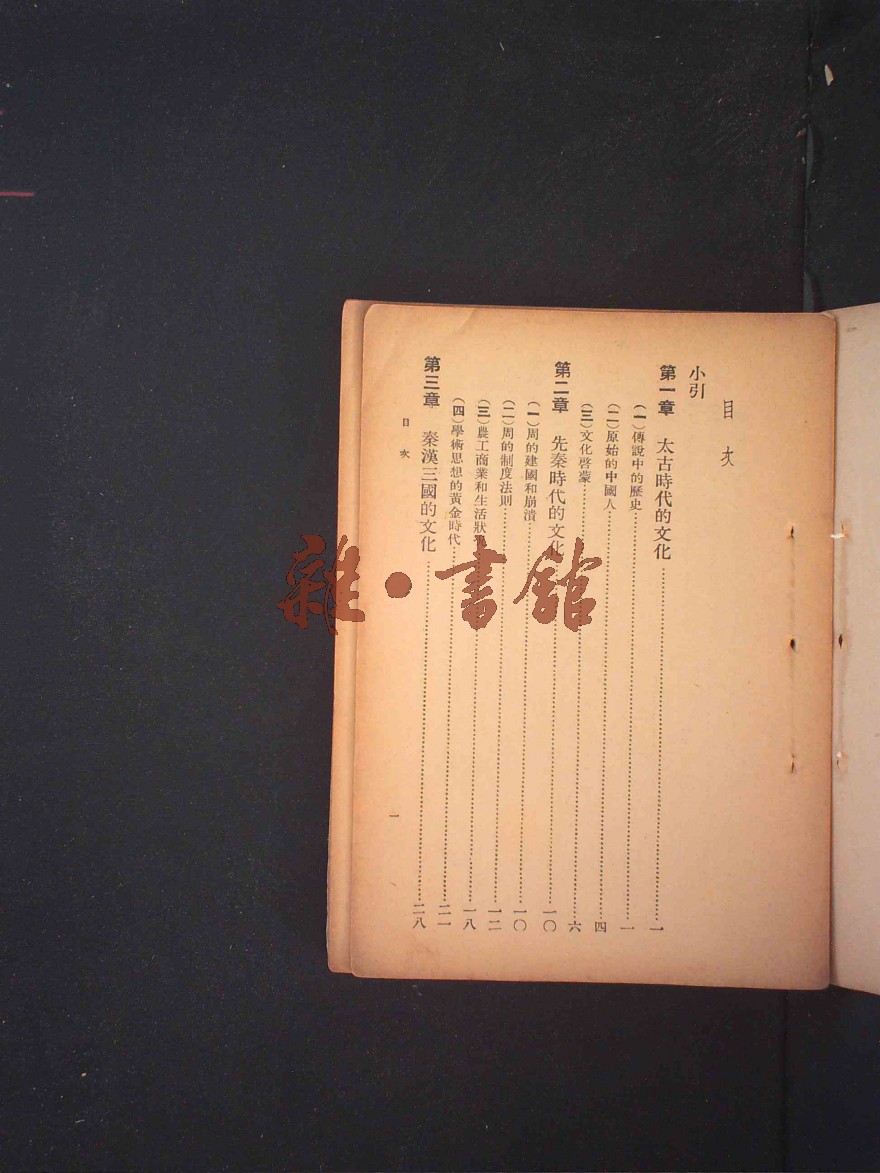 目次
小引
第一章 太古時代的文化……一
(一)傳說中的歷史……一
(二)原始的中國人……四
(三)文化啓蒙……六
第二章 先秦時代的文化……一〇
(一)周的建國和崩潰……一〇
(二)周的制度法則……一二
(三)農工商業和生活狀……一八
(四)學術思想的黃金時代……二一
第三章 秦漢三國的文化……二八
目次
一
雜·書館